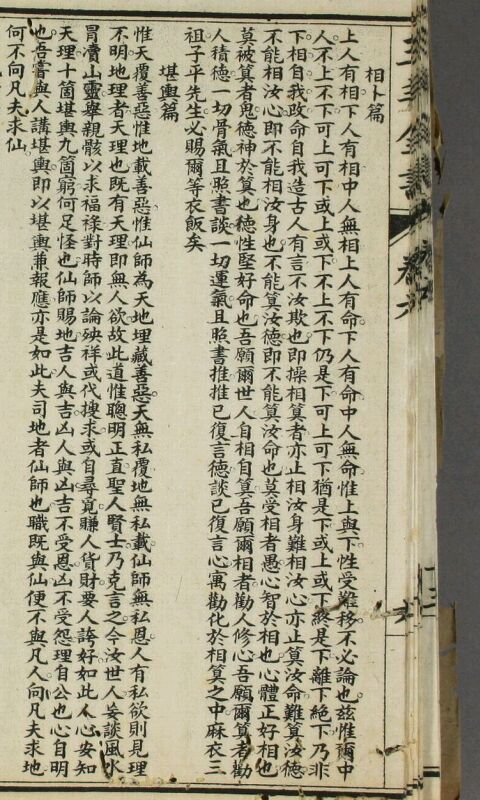 相卜篇
上人有相下人有相中人無相上人有命下人有命中人無命惟上與下性受難移不必論也茲惟爾中
人不上不下可上可下或上或下不上不下仍是下可上可下猶是下或上或下終是下離下絶下乃非
下相自我改命自我造古人有言不汝欺也即操相算者亦止相汝身難相汝心亦止算汝命難算汝德
不能相汝心即不能相汝身也不能算汝德即不能算汝命也莫受相者愚心智於相也心體正好相也
莫被算者鬼德神於算也德性堅好命也吾願爾世人自相自算吾願爾相者勸人修心吾願爾算者勸
人積德一切骨氣且照書談一切運氣且照書推推已復言德談已復言心寓勸化於相算之中麻衣三
祖子平先生必賜爾等衣飯矣
堪輿篇
惟天覆善惡惟地載善惡惟仙師為天地埋藏善惡天無私覆地無私載仙師無私恩人有私欲則見理
不明地理者天理也既有天理即無人欲故此道惟聰明正直聖人賢士乃克言之今汝世人妄談風水
冒瀆山靈舉親骸以求福祿對時師以論殃祥或代搜求或自尋覓賺人貨財要人誇好如此人心安知
天理十箇堪輿九箇窮何足怪也仙師賜地吉人與吉凶人與凶吉不受恩凶不受怨理自公也心自明
也吾嘗與人講堪輿即以堪輿兼報應亦是如此夫司地者仙師也職既與仙便不與凡人向凡夫求地
何不向凡夫求仙